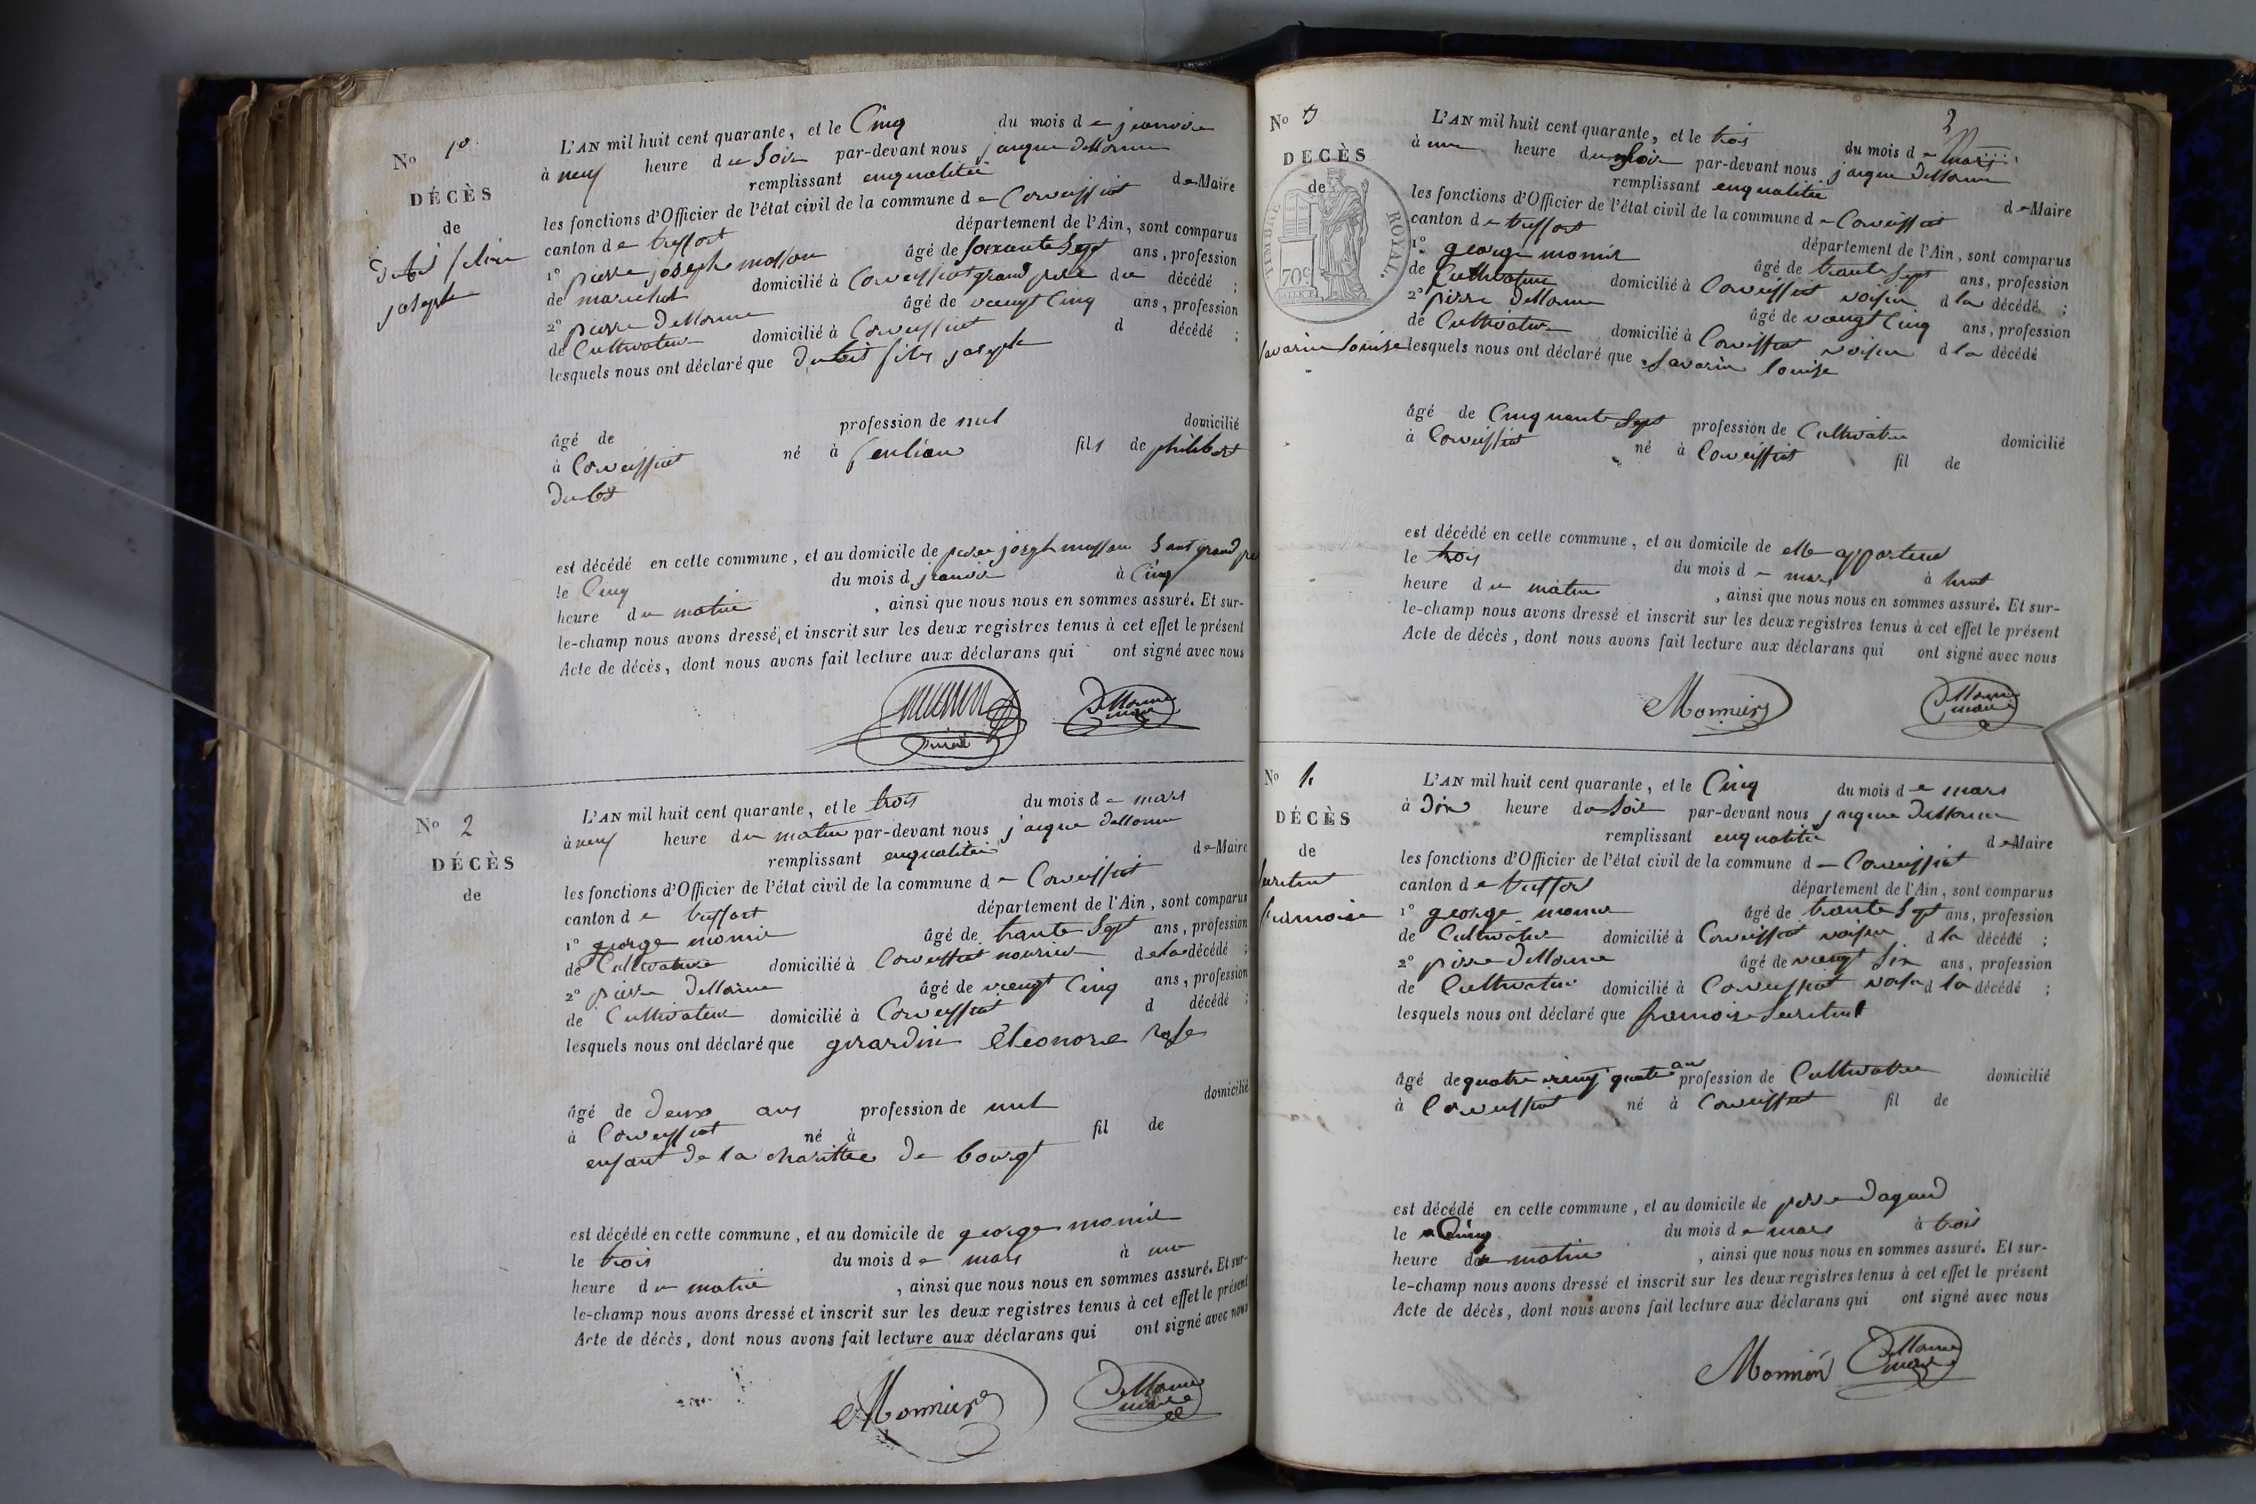 No 1o
DÉCÈS
de
joseph
L'AN mil huit cent quarante, et le Cinq du mois de janvier
à neuf heure du Soir par-devant nous jaque dellorme
remplissant enqualitée de Maire
les fonctions d'Officier de l'état civil de la commune de Corveissiat
canton de treffort département de l'Ain, sont comparus
1o pierre joseph masson âgé de soixante Sept ans, profession
de marechal domicilié à Corveissiat grand pere du décédé ;
2o pierre Dellorme âgé de vingt Cinq ans, profession
de Cultivateur domicilié à Corveissiat d décédé ;
lesquels nous ont déclaré que joseph
âgé de profession de nul domicilié
à Corveissiat né à fils de philibert
est décédé en cette commune, et au domicile de pierre joseph masson Sont grand pe
le Cinq du mois d janvier à Cinq
heure du matin , ainsi que nous nous en sommes assuré. Et sur-
le-champ nous avons dressé et inscrit sur les deux registres tenus à cet effet le présent
Acte de décès, dont nous avons fait lecture aux déclarans qui ont signé avec nous
Dellorme
maire
No 2
DÉCÈS
de
L'AN mil huit cent quarante, et le trois du mois de mars
à neuf heure du matin par-devant nous jaque dellorme
remplissant enqualitée de Maire
les fonctions d'Officier de l'état civil de la commune de Corveissiat
canton de treffort département de l'Ain, sont comparus
1o george monier âgé de trante Sept ans, profession
de Cultivateur domicilié à Corveissiat de la décédé ;
2o pierre dellorme âgé de vingt Cinq ans, profession
de Cultivateur domicilié à Corveissiat d décédé ;
lesquels nous ont déclaré que girardin Eleonore Rose
âgé de deux ans profession de nul domicilié
à Corveissiat né à fil de
enfant de la charittee de bourgt
est décédé en cette commune, et au domicile de george monier
le trois du mois de mars à une
heure du matin , ainsi que nous nous en sommes assuré. Et sur-
le-champ nous avons dressé et inscrit sur les deux registres tenus à cet effet le présent
Acte de décès, dont nous avons fait lecture aux déclarans qui ont signé avec nous
Monnier Dellorme
maire
2
No 3
DECÈS
de
TIMBRE ROYAL.
70c
Savarin Louise
L'AN mil huit cent quarante, et le trois du mois de mars
à une heure du Soir par-devant nous jaque Dellorme
remplissant enqualitée de Maire
les fonctions d'Officier de l'état civil de la commune de Corveissiat
canton de treffort département de l'Ain, sont comparus
1o george monier âgé de trante Sept ans, profession
de Cultivateur domicilié à Corveissiat voisin d la décédé ;
2o pierre Dellorme âgé de vingt Cinq ans, profession
de Cultivateur domicilié à Corveissiat voisin d la décédé
lesquels nous ont déclaré que Savarin Louise
âgé de Cinquante Sept profession de Cultivatre domicilié
à Corveissiat né à Corveissiat fil de
est décédé en cette commune, et au domicile de elle
le trois du mois de mars à huit
heure du matin , ainsi que nous nous en sommes assuré. Et sur-
le-champ nous avons dressé et inscrit sur les deux registres tenus à cet effet le présent
Acte de décès, dont nous avons fait lecture aux déclarans qui ont signé avec nous
Monnier Dellorme
maire
No 4
DÉCÈS
de
L'AN mil huit cent quarante, et le Cinq du mois de mars
à Dix heure du Soir par-devant nous jaque Dellorme
remplissant enqualitée de Maire
les fonctions d'Officier de l'état civil de la commune de Corveissiat
canton de treffort département de l'Ain, sont comparus
1o george monier âgé de trante Sept ans, profession
de Cultivateur domicilié à Corveissiat voisin d la décédé ;
2o pierre dellorme âgé de vingt Six ans, profession
de Cultivateur domicilié à Corveissiat voisin d la décédé ;
lesquels nous ont déclaré que
âgé de quatre vingt quatre an profession de Cultivatre domicilié
à Corveissiat né à Corveissiat fil de
est décédé en cette commune, et au domicile de pierre
le Cinq du mois de mars à trois
heure du matin , ainsi que nous nous en sommes assuré. Et sur-
le-champ nous avons dressé et inscrit sur les deux registres tenus à cet effet le présent
Acte de décès, dont nous avons fait lecture aux déclarans qui ont signé avec nous
Monnier Dellorme
maire